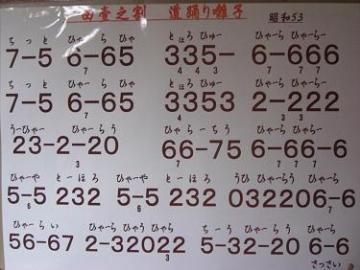 由壱之割 道踊り囃子 昭和53
ちっと ひゃら ひゃ とほろ ひゅー ひゃーら ひゃらー
7-5 6-65 335- 6-666
7 4 4 3 7 7
ちっと ひゃら ひゃ とほろ ひゅー ひゃーら ひゃらー
7-5 6-65 3353 2-222
7 4 4 3 3
うーひゃー ひゃーらう ひゃらーちう ひゃーらひゃーら
23-2-20 66-75 6-66-6
3 7 7 7 7
ひゃーや とーほろ ひゃーや とーほろ ひゃらう ひゃーら
5-5 232 5-5 232 032206-6
6 6 7
ひゃーらい ひゃーらひゃうひゃら ちーうひゃーらう ひゃーら
56-67 2-32022 5-32-20 6-6
3
さっさい